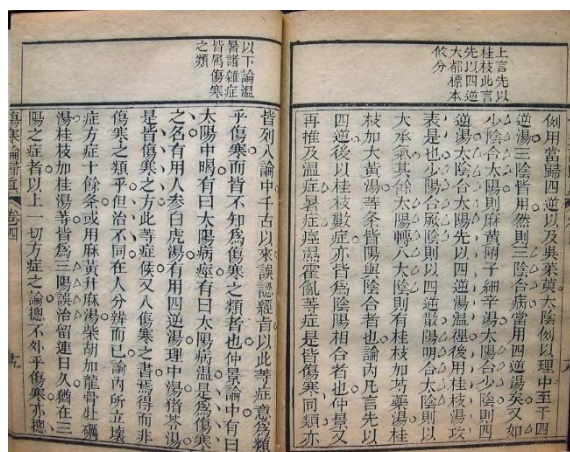 上言先以
桂枝此言
先以四逆
大都標本
攸分
例用當歸四逆以及吳茱萸太陰例以理中至于四
逆湯三陰皆用然則三陰合病當用四逆湯矣又如
少陰合太陽則麻黃附子細辛湯太陽合少陰則四
逆湯太陰合太陽先以四逆湯溫裡後用桂枝湯攻
表是也少陽合厥陰則以四逆散陽明合太陰則以
大承氣其餘太陽轉入太陰則有桂枝加芍藥湯桂
枝加大黃湯等条皆陽與陰合者也論內凡言先以
四逆後以桂枝數症亦皆爲陰陽相合者也仲景又
再推及溫症暑症痙濕霍亂等症是皆傷寒同類亦
以下論溫
暑諸雜症
皆屬傷寒
之類
皆列入論中千古以來誤認經旨以此等症意爲類
乎傷寒而皆不知爲傷寒之類者也仲景論中有曰
太陽中暍有曰太陽病痙有曰太陽病溫是爲傷寒
之名有用人參白虎湯有用四逆湯理中湯
是皆傷寒之方此等症候又入傷寒之書焉得而非
傷寒之類乎但治不同在人分辨而已論內所立壞
症方症十餘条或用麻黃升麻湯柴胡加龍骨牡礪
湯桂枝加桂湯等皆爲三陽誤治留連日久猶在三
陽之症者以上一切方症之論總不外乎傷寒亦總
傷寒論歸眞
卷四